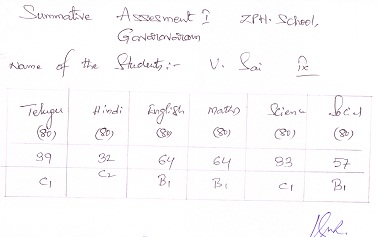 Summative Assesment I ZPH. School,
Gavaravaram
Name of the Students:- V. Sai IX
Telugu Hindi English Maths Science Social
(80) (80) (80) (80) (80) (80)
39 32 64 64 33 57
C1 C2 B1 B1 C1 B1